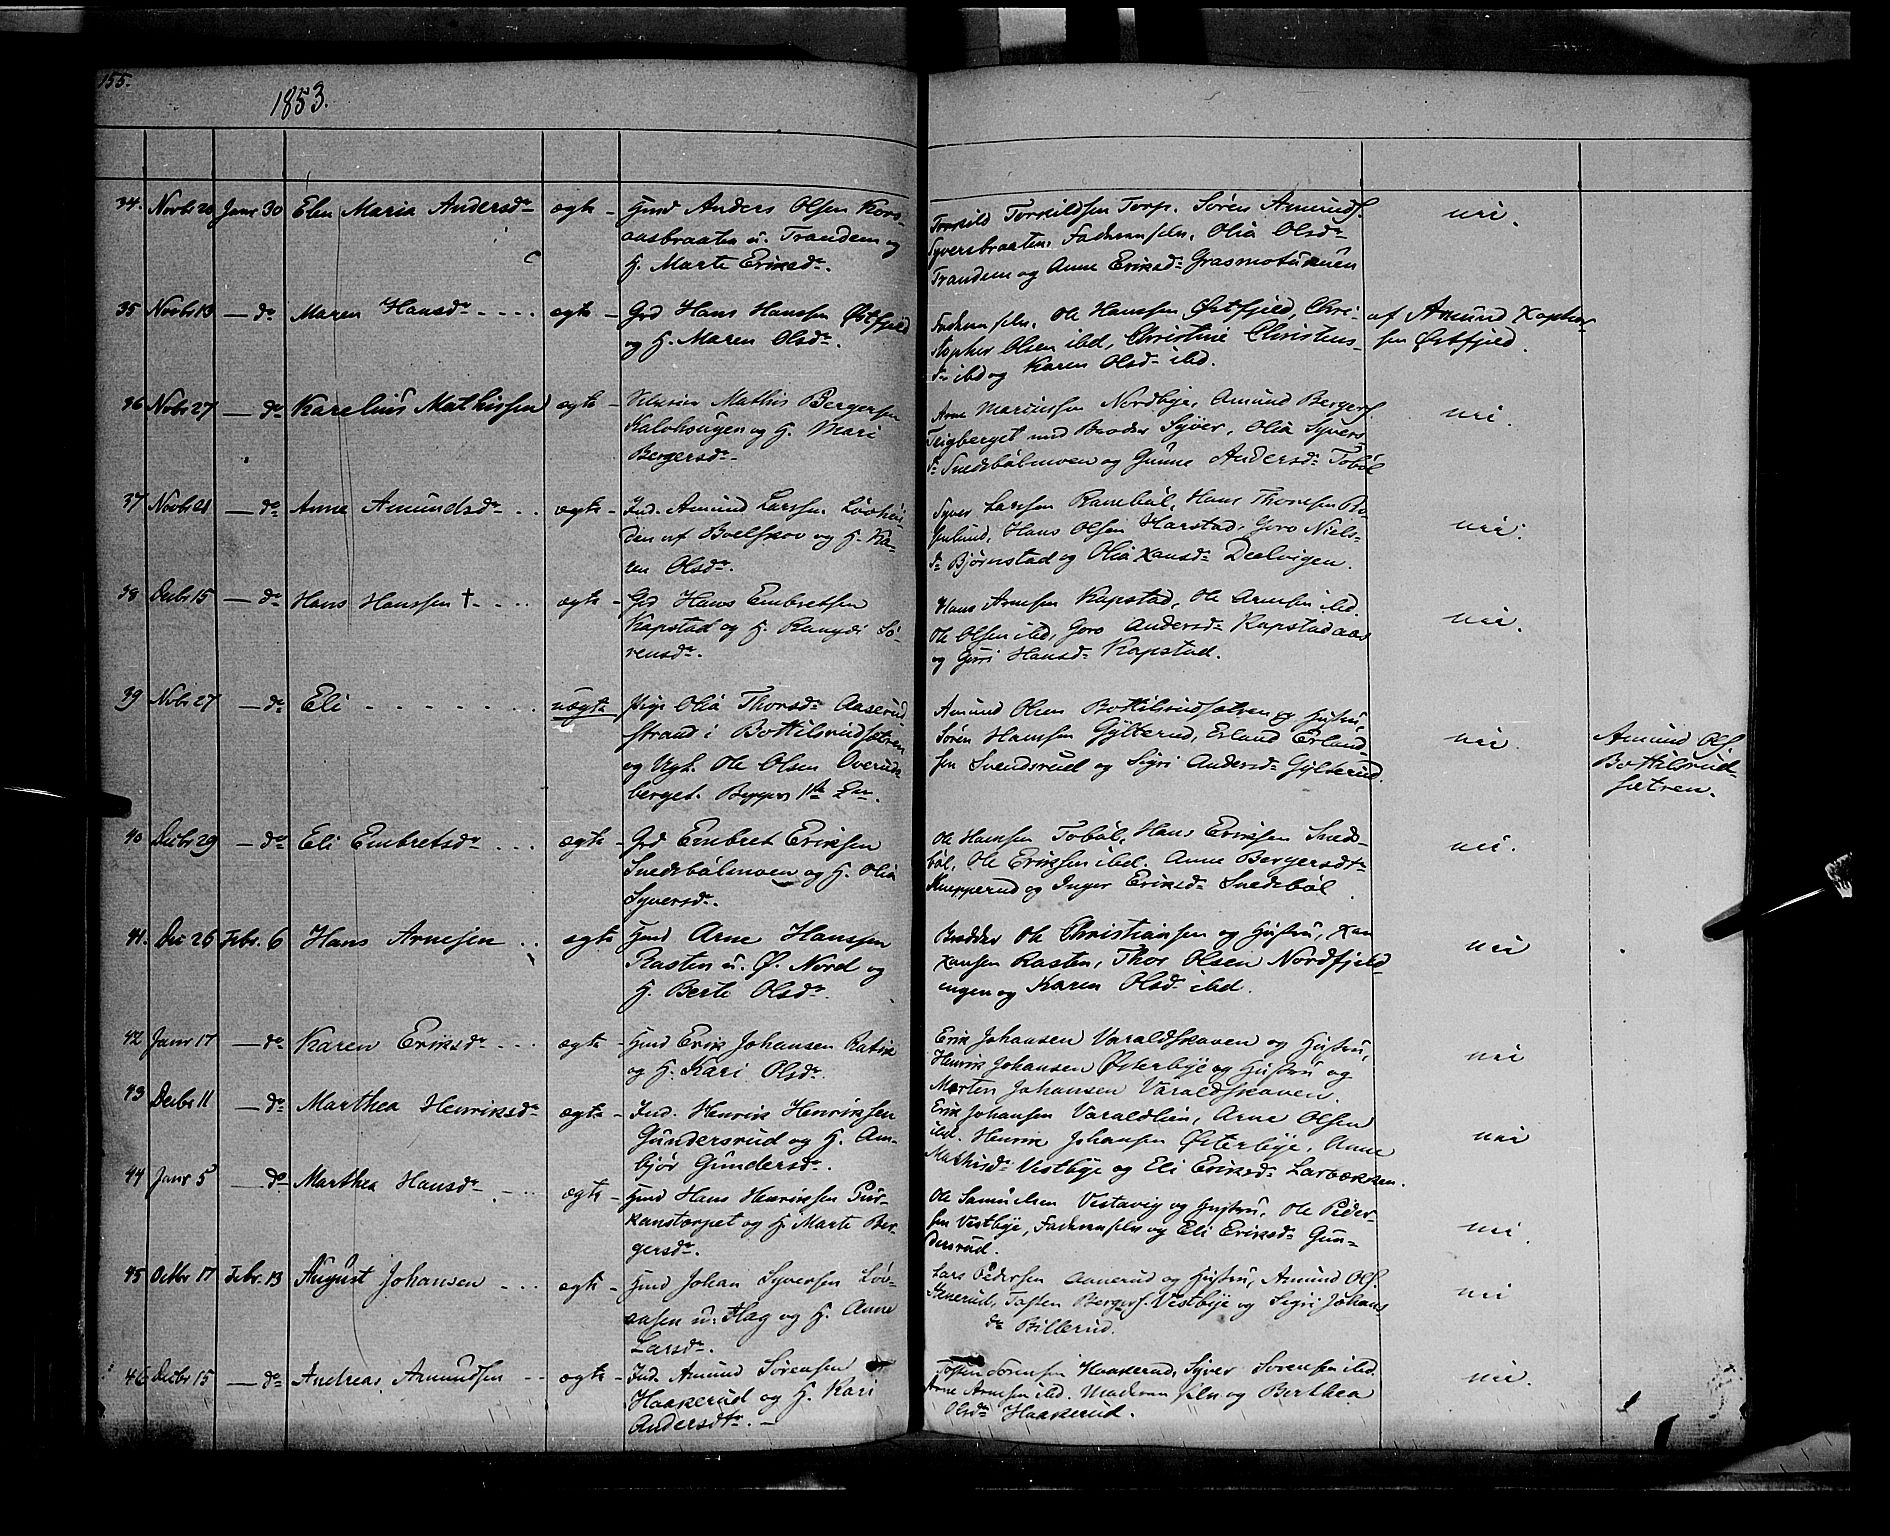 155.
1853.
34. Novbr 20 Janr 30 Elen Maria Andersdr ægte Hmd Anders Olsen Kors-
aasbraaten u. Trandem og
H. Marte Eriksdr.
Torkild Torkildsen Torp. Søren Amunds.
Syversbraaten. Faderen selv, Olia Olsdr
Trandem og Anne Eriksdr Grasmotukuen
nei.
35 Novbr 13 — do Maren Hansdr ægte Grd Hans Hanssen Østfjeld
og H. Maren Olsdr.
Faderen selv. Ole Hanssen Østfjeld, Chri-
stopher Olsen ibd, Christine Christens-
dr ibd og Karen Olsdr ibd.
af Amund
sen Østfjeld.
36 Nobr 27 — do Karelius Mathissen ægte Mathis Bergersen
Kalvhougen og H. Mari
Bergersdr.
Arne Nordbye, Amund Bergers.
Teigberget med Broder Syver, Olia Syvers
dr Snedsbølmoen og Gunne Andersdr Tobøl
nei.
37 Novbr 21 — do Anne Amundsdr ægte Ind. Amund Larssen
den af og H. Ka-
ren Olsdr.
Syver Larssen Ranebøl, Hans Thoresen
Hans Olsen Harstad, Goro Niels-
dr Bjørnstad og Olia Hansdr Deelvigen.
nei.
38 Decbr 15 — do Hans Hanssen † ægte Grd Hans Embretsen
Kapstad og H. Rangdi Sø-
rensdr.
Hans Arnesen Kapstad, Ole Arnesen ibd.
Ole Olsen ibd, Goro Andersdr Kapstadaas
og Gurri Hansdr Kapstad.
nei.
39 Nobr 27 — do Eli uægte Pige Olia Thorsdr Aaserud
strand i Bottilsrudsætren
og Ugk. Ole Olsen Overuds
berget. Begges 1ste
Amund Olsen Bottilsrudsætren og Hustru,
Søren Hanssen Gylterud, Erland Erland-
sen Svendsrud og Sigri Andersdr Gylterud.
nei.
Amund Ols.
Bottilsrud-
sætren.
40 Decbr 29 — do Eli Embretsdr ægte Grd Embret Eriksen
Snedsbølmoen og H. Olia
Syversdr.
Ole Hanssen Tobøl, Hans Eriksen Sneds-
bøl, Ole Eriksen ibd. Anne Bergersdtr
Knepperud og Inger Eriksdr Snedsbøl.
nei.
41. Dec 26 Febr. 6 Hans Arnesen ægte Hmd Arne Hanssen
Rasten u. Ø. Nord og
H. Berte Olsdr.
Brødder Ole Christiansen og Hustru, Han
Hansen Rasten, Thor Olsen Nordfjeld-
ingen og Karen Olsdr ibd.
nei
42 Janr 17 — do Karen Eriksdr ægte Hmd Erik Johansen
og H. Kari Olsdr.
Erik Johansen Varaldskoven og Hustru,
Henrik Johansen Østerbye og Hustru og
Morten Johansen Varaldskoven.
nei
43 Decbr 11 — do Marthea Henriksdr ægte Ind. Henrik Henriksen
Gundersrud og H. Am-
bjør Gundersdr.
Erik Johansen Varaldlien, Arne Olsen
ibd. Henrik Johansen Østerbye, Anne
Mathisdr Vestbye og Eli Eriksdr Larbæksen.
nei
44 Janr 5 — do Marthea Hansdr ægte Hmd Hans Henriksen Pur-
kanstorpet og H. Marte Ber-
gersdr.
Ole Samuelsen Vestavig og Hustru, Ole Peder-
sen Vestbye, Faderen selv og Eli Eriksdr Gun-
dersrud.
nei.
45 Octbr 17 Febr. 13 August Johansen ægte Hmd Johan Syversen Løv-
aasen u. Hag og H. Anne
Larsdr.
Lars Pedersen Aanerud og Hustru, Amund Ols.
Stenerud, Tosten Bergers. Vestbye og Sigri Johans
dr Billerud.
nei
46 Decbr 15 — do Andreas Amundsen ægte Ind. Amund Sørensen
Haakerud og H. Kari
Andersdtr.
Tosten Sørensen Haakerud, Syver Sørensen ibd.
Arne Arnesen ibd. Moderen selv og Berthea
Olsdr Haakerud.
nei.